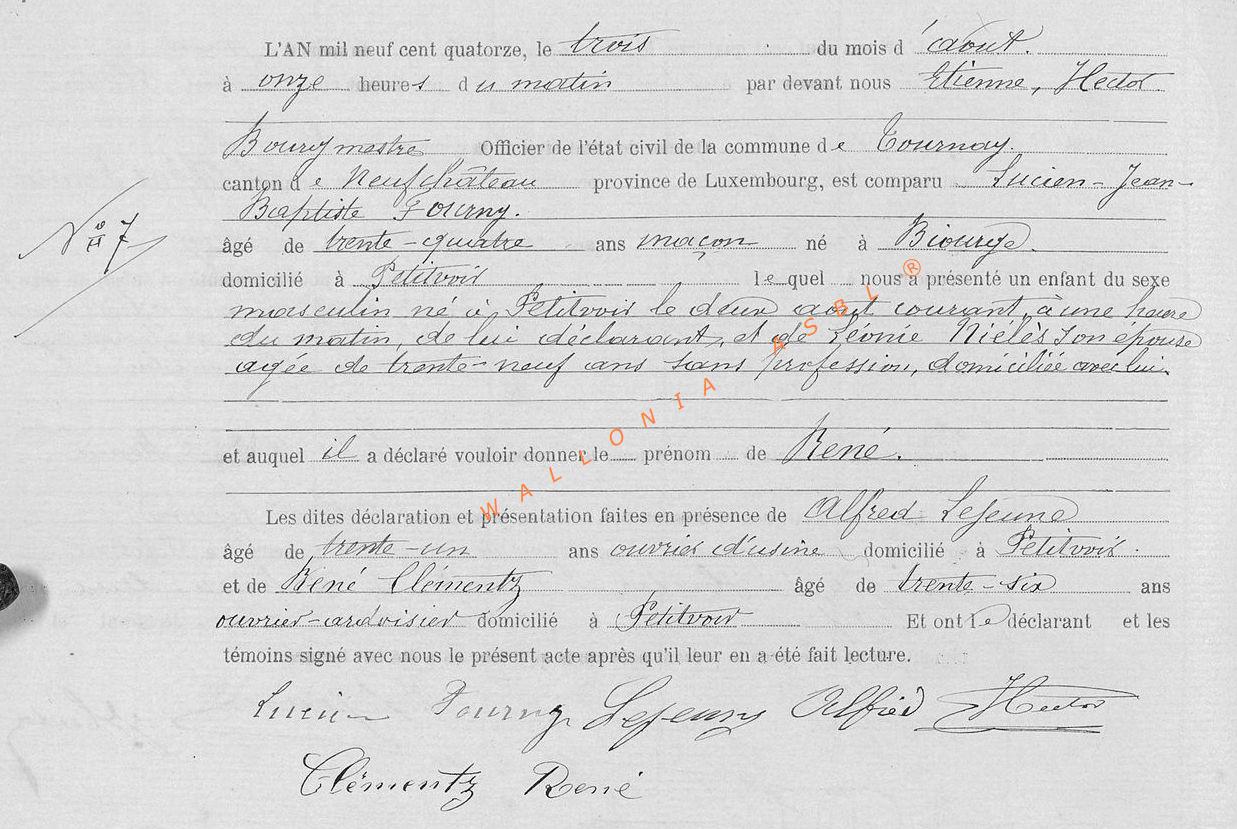 L'AN mil neuf cent quatorze, le trois du mois d'aout.
à onze heures du matin par devant nous Etienne, Hector
Bourgmestre Officier de l'état civil de la commune de Tournay.
canton de Neufchâteau province de Luxembourg, est comparu Lucien-Jean-
Baptiste Fourny.
No 7
âgé de trente-quatre ans maçon né à Biourge.
domicilié à Petitvoir lequel nous a présenté un enfant du sexe
masculin né à Petitvoir le deux aout courant, à une heure
du matin, de lui déclarant, et de Léonie Nielès son épouse
agée de trente-neuf ans sans profession, domiciliée avec lui.
et auquel il a déclaré vouloir donner le prénom de René.
Les dites déclaration et présentation faites en présence de Alfred Lejeune
âgé de trente-un ans ouvrier d'usine domicilié à Petitvoir.
et de René Clémentz âgé de trente-six ans
ouvrier-ardoisier domicilié à Petitvoir Et ont le déclarant et les
témoins signé avec nous le présent acte après qu'il leur en a été fait lecture.
Lucien Fourny Lejeune Alfred Hector
Clémentz René
WALLONIA ASBL ®